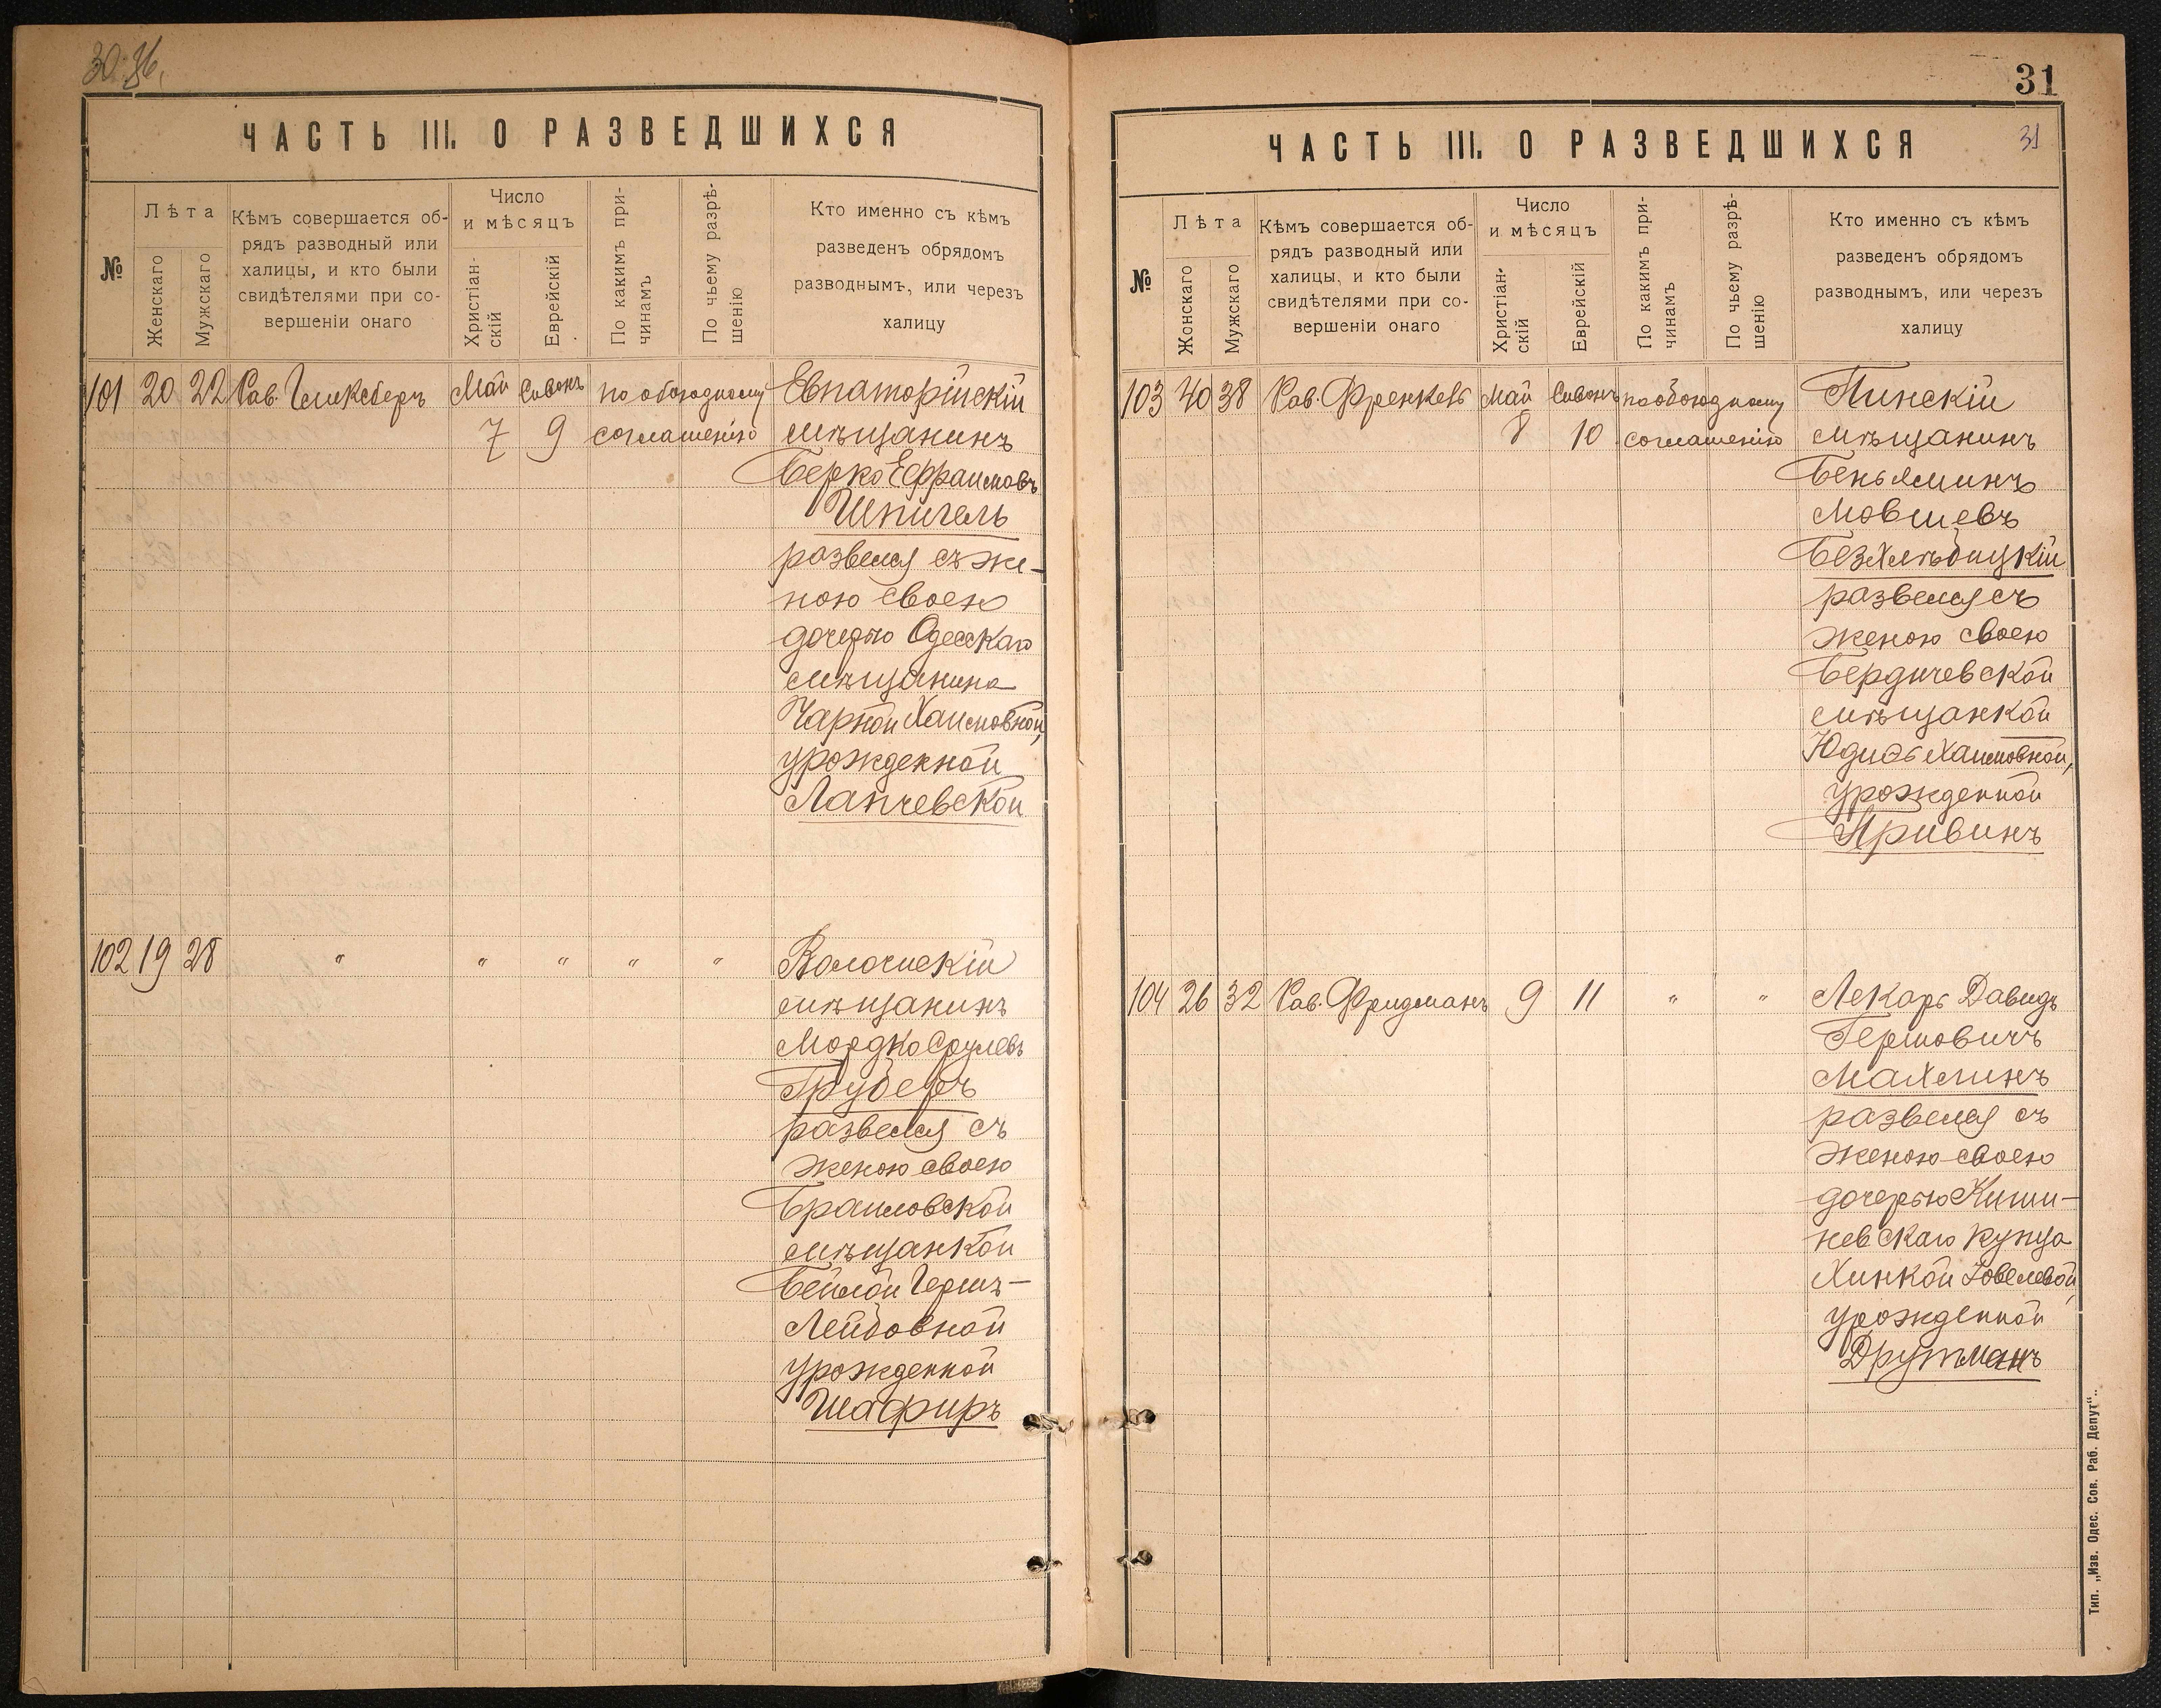 30.
ЧАСТЬ III. О РАЗВЕДШИХСЯ
№
Лѣта
Женскаго
Мужскаго
Кѣмъ совершается об-
рядъ разводный или
халицы, и кто были
свидѣтелями при со-
вершеніи онаго
Число
и мѣсяцъ
Христіан-
скій
Еврейскій
По какимъ при-
чинамъ
По чьему разрѣ-
шенію
Кто именно съ кѣмъ
разведенъ обрядомъ
разводнымъ, или черезъ
халицу
101 20 22 Рав. Май Сивонъ по обоюдному Евпаторійскій
7 9 соглашенію мѣщанинъ
Берко Ефраимовъ
Шпигель
развелся съ же-
ною своею
дочерью Одесскаго
мѣщанина
Чарной Хаимовной,
урожденной
Лапчевской
102 19 28 " " " " " Волочискій
мѣщанинъ
Мордко Срулевъ
Груберъ
развелся съ
женою своею
Браиловской
мѣщанкой
Бейлой Гершъ-
Лейбовной
урожденной
Шафиръ
31
ЧАСТЬ III. О РАЗВЕДШИХСЯ
31
№
Лѣта
Жонскаго
Мужскаго
Кѣмъ совершается об-
рядъ разводный или
халицы, и кто были
свидѣтелями при со-
вершеніи онаго
Число
и мѣсяцъ
Христіан-
скій
Еврейскій
По какимъ при-
чинамъ
По чьему разрѣ-
шенію
Кто именно съ кѣмъ
разведенъ обрядомъ
разводнымъ, или черезъ
халицу
103 40 38 Рав. Френкель Май Сивонъ по обоюдному Пинскій
8 10 соглашенію мѣщанинъ
Беньяминъ
Мовшевъ
Безхлѣбицкій
развелся съ
женою своею
Бердичевской
мѣщанкой
Юдиѳь Хаимовной,
урожденной
Кривинъ
104 26 32 Рав. Фридманъ 9 11 " " Лекарь Давидъ
Гершовичъ
Махлинъ
развелся съ
женою своею
дочерью Киши-
невскаго купца
Хинкой Іовелевой,
урожденной
Друтманъ
Тип. „Изв. Одес. Сов. Раб. Депут“.